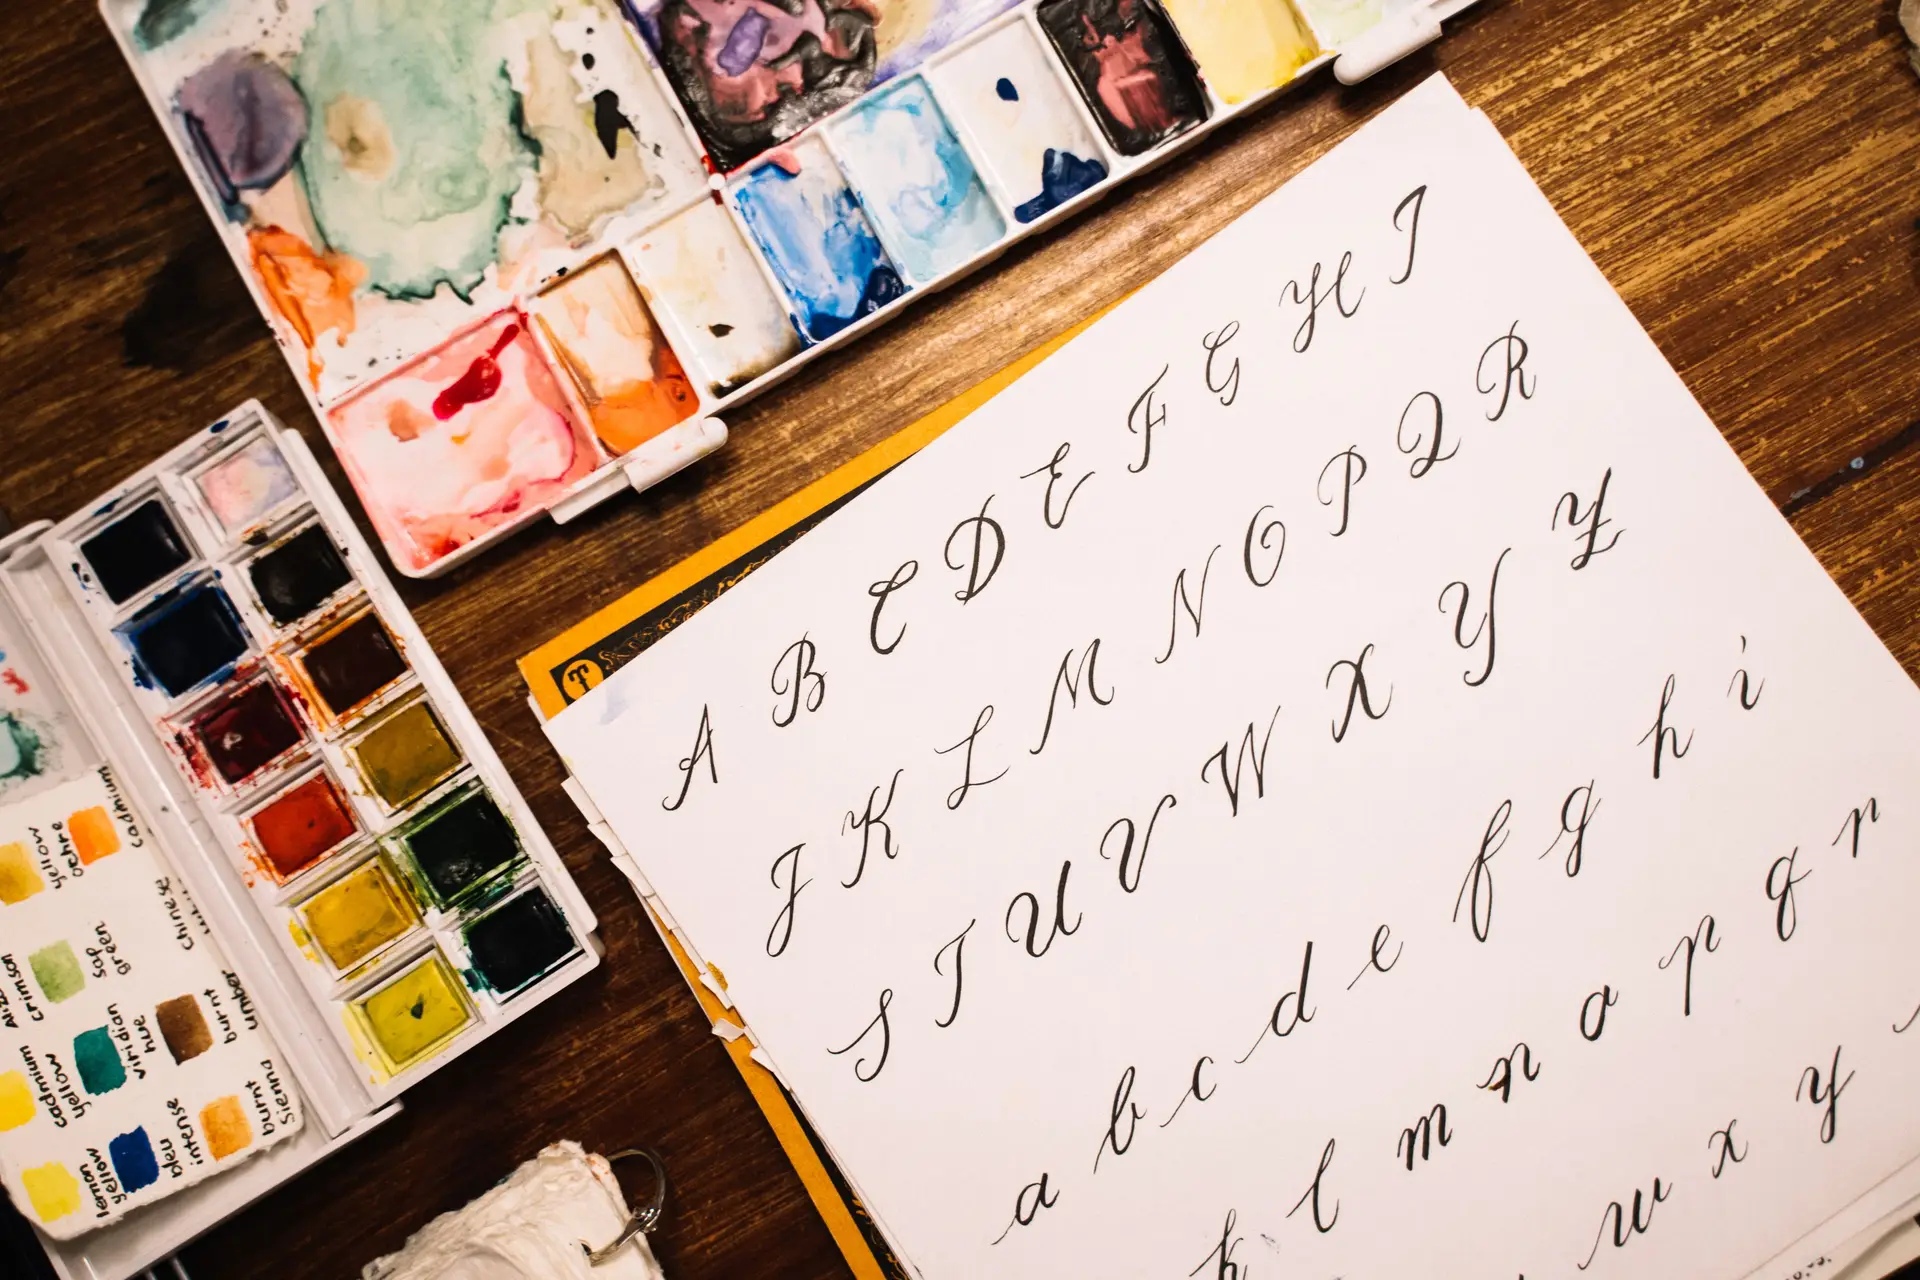 A B C D E F G H I
J K L M N O P Q R
S T U V W X Y Z
a b c d e f g h i
k l m n o p q r
w x y
T
cadmium
yellow ochre
chinese
sap green
crimson
burnt umber
viridian hue
cadmium yellow
burnt Sienna
bleu intense
lemon yellow